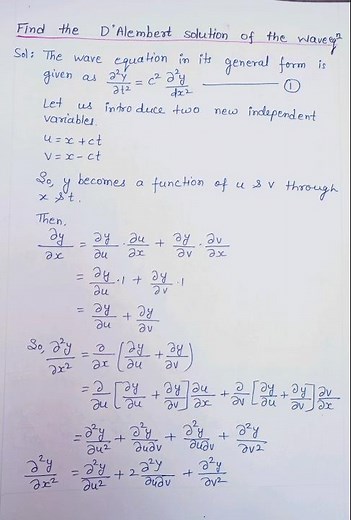 Find the D'Alembert solution of the wave eqⁿ
Sol: The wave equation in its general form is
given as ∂²y/∂t² = c² ∂²y/dx² ——— ①
Let us introduce two new independent
variables
u = x + ct
v = x - ct
So, y becomes a function of u & v through
x & t.
Then,
∂y/∂x = ∂y/∂u · ∂u/∂x + ∂y/∂v · ∂v/∂x
= ∂y/∂u · 1 + ∂y/∂v · 1
= ∂y/∂u + ∂y/∂v
So, ∂²y/∂x² = ∂/∂x (∂y/∂u + ∂y/∂v)
= ∂/∂u [∂y/∂u + ∂y/∂v] ∂u/∂x + ∂/∂v [∂y/∂u + ∂y/∂v] ∂v/∂x
= ∂²y/∂u² + ∂²y/∂u∂v + ∂²y/∂u∂v + ∂²y/∂v²
∂²y/∂x² = ∂²y/∂u² + 2 ∂²y/∂u∂v + ∂²y/∂v²